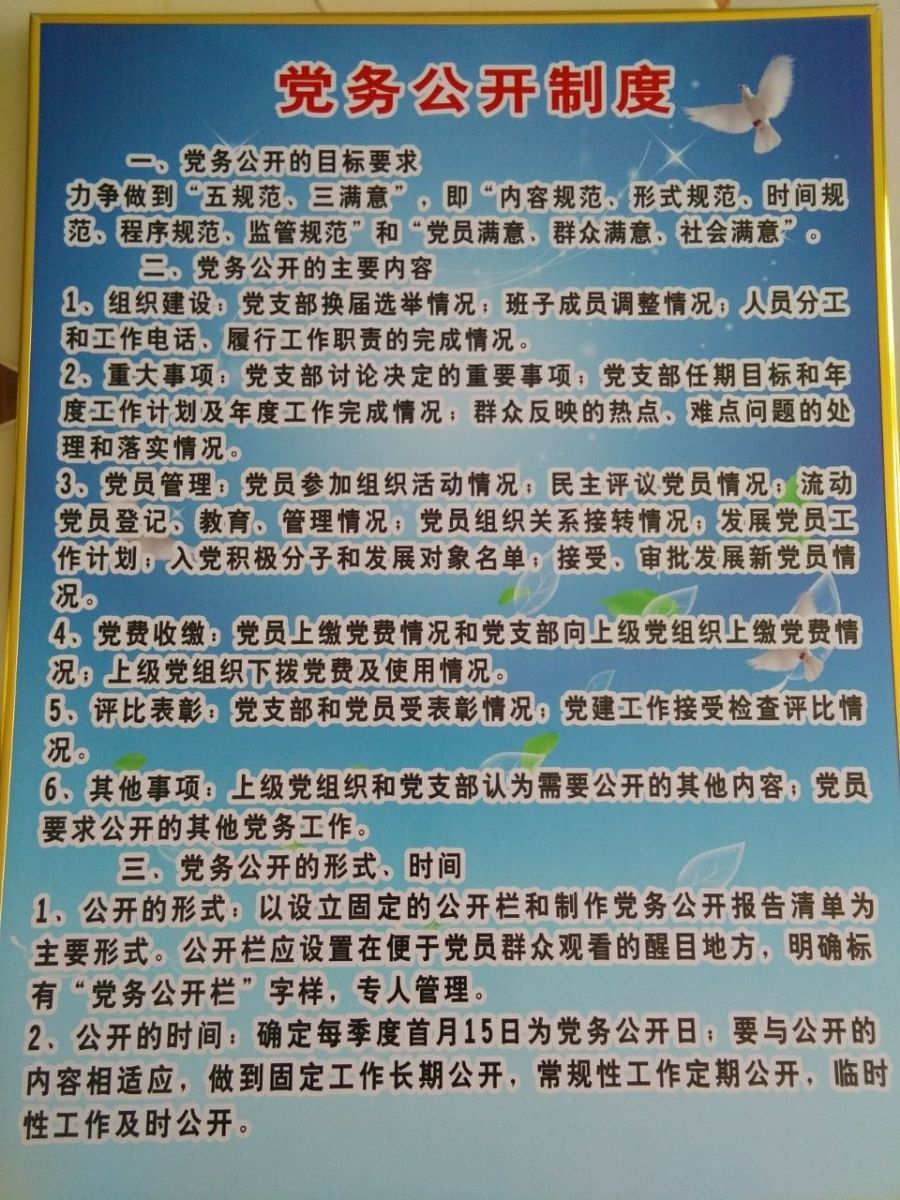 党务公开制度
一、党务公开的目标要求
力争做到“五规范、三满意”，即“内容规范、形式规范、时间规
范、程序规范、监管规范”和“党员满意、群众满意、社会满意”。
二、党务公开的主要内容
1、组织建设：党支部换届选举情况；班子成员调整情况；人员分工
和工作电话、履行工作职责的完成情况。
2、重大事项：党支部讨论决定的重要事项；党支部任期目标和年
度工作计划及年度工作完成情况；群众反映的热点、难点问题的处
理和落实情况。
3、党员管理：党员参加组织活动情况；民主评议党员情况；流动
党员登记、教育、管理情况；党员组织关系接转情况；发展党员工
作计划；入党积极分子和发展对象名单；接受、审批发展新党员情
况。
4、党费收缴：党员上缴党费情况和党支部向上级党组织上缴党费情
况；上级党组织下拨党费及使用情况。
5、评比表彰：党支部和党员受表彰情况；党建工作接受检查评比情
况。
6、其他事项：上级党组织和党支部认为需要公开的其他内容；党员
要求公开的其他党务工作。
三、党务公开的形式、时间
1、公开的形式：以设立固定的公开栏和制作党务公开报告清单为
主要形式。公开栏应设置在便于党员群众观看的醒目地方，明确标
有“党务公开栏”字样，专人管理。
2、公开的时间：确定每季度首月15日为党务公开日；要与公开的
内容相适应，做到固定工作长期公开，常规性工作定期公开，临时
性工作及时公开。